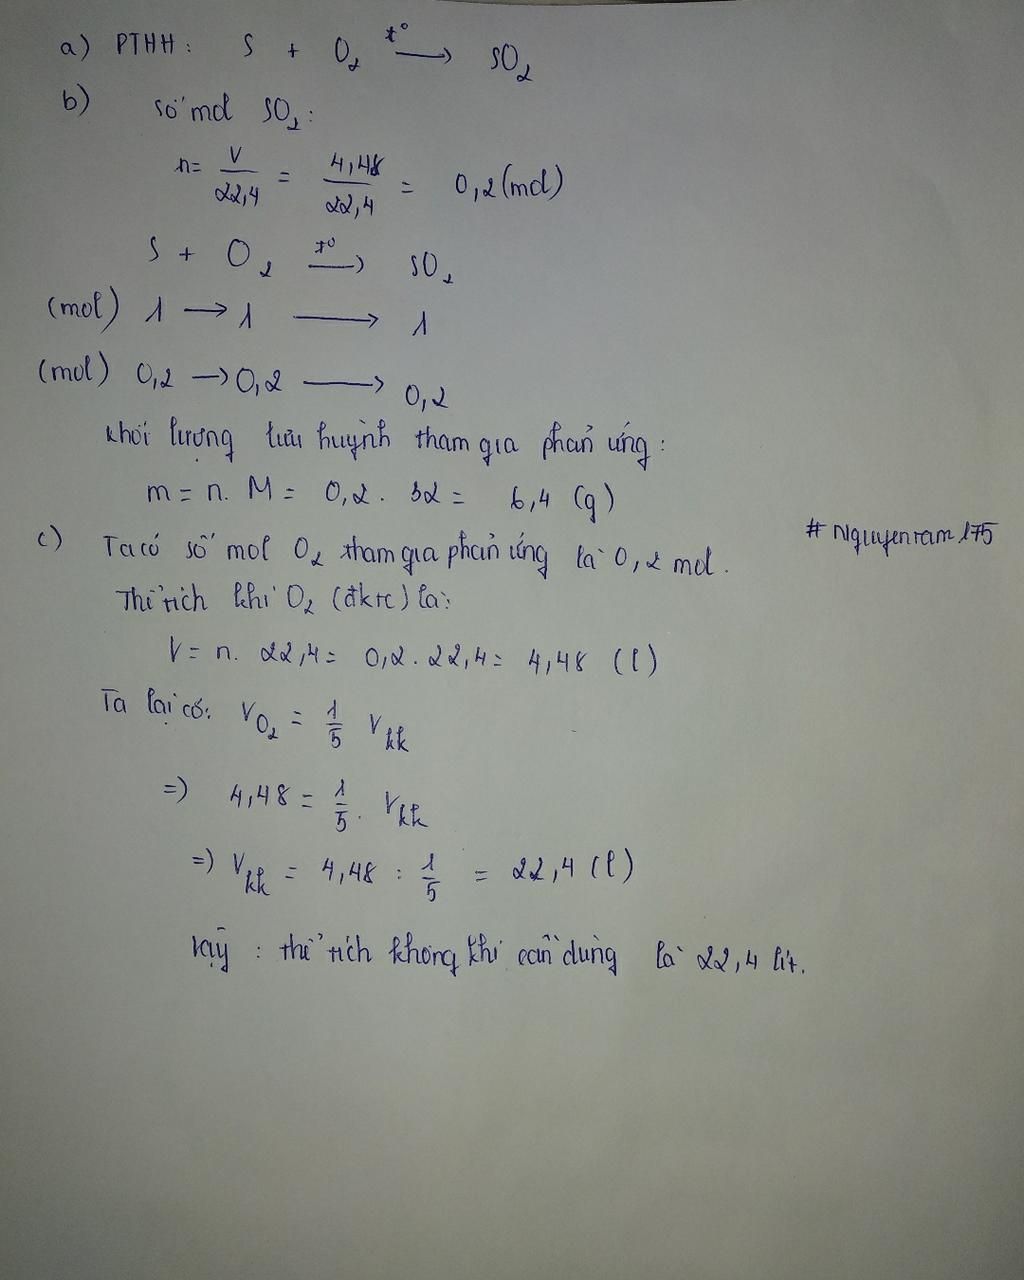 a) PTHH: S + O₂ t° → SO₂
b) Số mol SO₂:
n = V/22,4 = 4,48/22,4 = 0,2 (mol)
S + O₂ t° → SO₂
(mol) 1 → 1 → 1
(mol) 0,2 → 0,2 → 0,2
Khối lượng lưu huỳnh tham gia phản ứng:
m = n. M = 0,2. 32 = 6,4 (g)
# Nguyentam175
c) Ta có số mol O₂ tham gia phản ứng là 0,2 mol.
Thể tích khí O₂ (đktc) là:
V = n. 22,4 = 0,2. 22,4 = 4,48 (l)
Ta lại có: V O₂ = 1/5 Vkk
=) 4,48 = 1/5. Vkk
=) Vkk = 4,48 : 1/5 = 22,4 (l)
Vậy : thể tích không khí cần dùng là 22,4 lít.